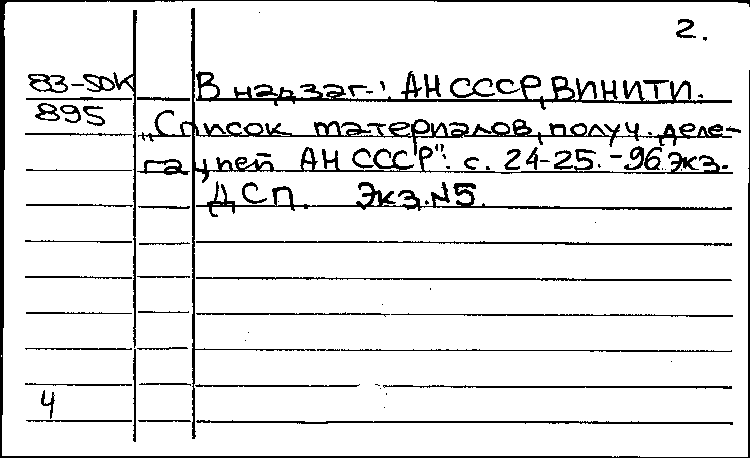 2.
83-50К В надзаг.: АН СССР, ВИНИТИ.
895 „Список материалов, получ. деле-
гацией АН СССР": с. 24-25. - 96 экз.
ДСП. Экз. №5.
4